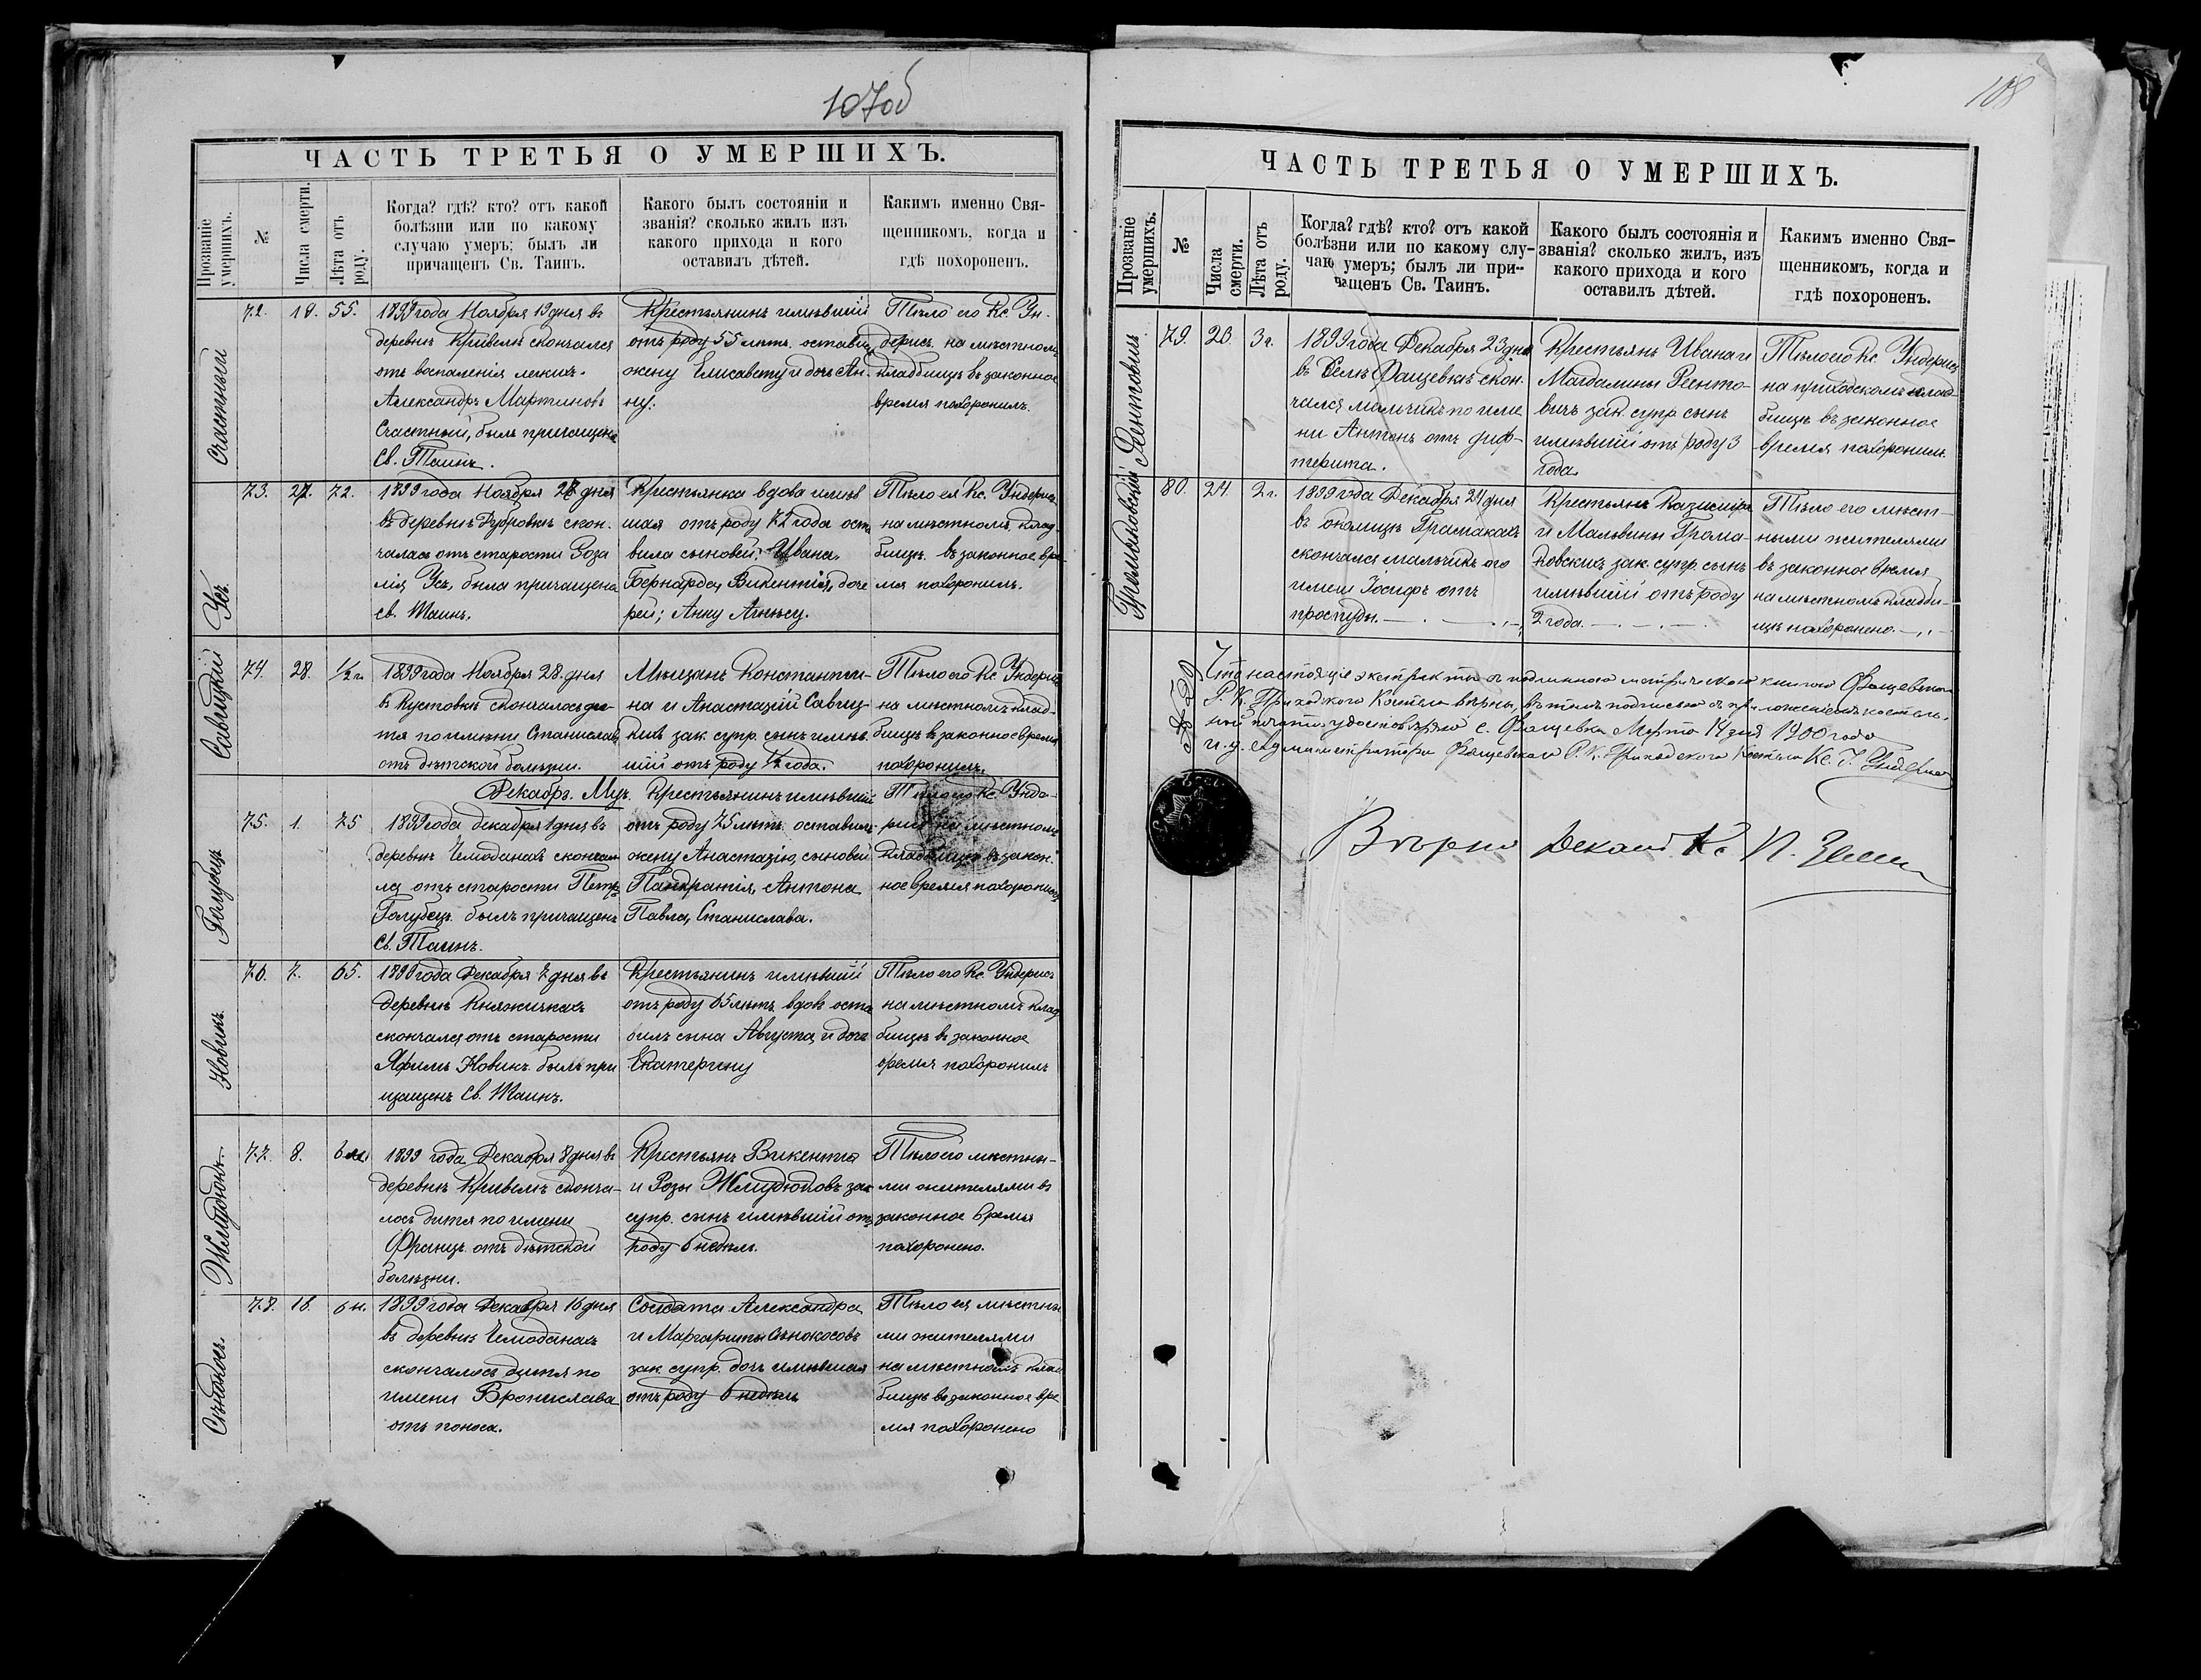 107об
ЧАСТЬ ТРЕТЬЯ О УМЕРШИХЪ.
Прозваніе умершихъ.
№
Числа смерти.
Лѣта отъ роду.
Когда? гдѣ? кто? отъ какой
болѣзни или по какому
случаю умеръ; былъ ли
причащенъ Св. Таинъ.
Какого былъ состояніи и
званія? сколько жилъ изъ
какого прихода и кого
оставилъ дѣтей.
Какимъ именно Свя-
щенникомъ, когда и
гдѣ похороненъ.
Счастный
72.
19.
55.
1899 года Ноября 19 дня въ
деревнѣ Кривелѣ скончался
отъ воспаленія легкихъ.
Александръ Мартиновъ
Счастный, былъ причащенъ
Св. Таинъ.
Крестьянинъ имѣвшій
отъ роду 55 лѣтъ. оставилъ
жену Елисавету и дочь Ан-
ну.
Тѣло его Кс. Ун-
дерисъ. на мѣстномъ
кладбищѣ въ законное
время похоронилъ.
Усъ
73.
27.
72.
1899 года Ноября 27 дня
въ деревнѣ Дубровкѣ скон-
чалась отъ старости Роза
лія Усъ, была причащена
Св. Таинъ.
Крестьянка вдова имѣв
шая отъ роду 72 года оста
вила сыновей: Ивана,
Бернарда, Викентія, доче
рей; Анну Агнѣсу.
Тѣло ея Кс. Ундерисъ
на мѣстномъ клад
бищѣ въ законное вре
мя похоронилъ.
Савицкій
74.
28.
1/2 г.
1899 года Ноября 28. дня
въ Кустовкѣ скончалось ди-
тя по имени Станиславъ
отъ дѣтской болѣзни.
Мѣщанъ Константи-
на и Анастазіи Савиц-
кихъ зак. супр. сынъ имѣв.
шій отъ роду 1/2 года.
Тѣло его Кс Ундерисъ
на мѣстномъ клад-
бищѣ въ законное время
похоронилъ.
Декабрь. Муж.
Голубецъ
75.
1.
75
1899 года декабря 1 дня въ
деревнѣ Чемоданахъ скончал
ся отъ старости Петръ
Голубецъ. былъ причащенъ
Св. Таинъ.
Крестьянинъ имѣвшій
отъ роду 75 лѣтъ. оставилъ
жену Анастазію, сыновей
Панкратія, Антона
Павла, Станислава.
Тѣло его Кс Унде-
рисъ на мѣстномъ
кладбищѣ въ закон.
ное время похоронилъ
Новикъ
76.
7.
65.
1899 года Декабря 7 дня въ
деревнѣ Княжичкахъ
скончался отъ старости
Яфимъ Новикъ. былъ при
щащенъ Св. Таинъ.
Крестьянинъ имѣвшій
отъ роду 65 лѣтъ. вдовъ оста
вилъ сына Августа, и дочь
Екатерину
Тѣло его Кс. Ундерисъ
на мѣстномъ клад
бищѣ въ законное
время похоронилъ
Жмудюкъ
77.
8.
1899 года Декабря 8 дня въ
деревнѣ Кривелѣ сконча-
лось дитя по имени
Францъ отъ дѣтской
болѣзни.
Крестьянъ Викентія
и Розы Жмудюковъ зак
супр. сынъ имѣвшій отъ
роду 6 недѣль.
Тѣло его мѣстны-
ми жителями въ
законное время
похоронено.
Сѣнокосъ
78.
16.
6 н.
1899 года Декабря 16 дня
въ деревнѣ Чемоданахъ
скончалось дитя по
имени Брониславa
отъ поноса.
Солдата Александра
и Маргариты Сѣнокосовъ
зак супр. дочь имѣвшая
отъ роду 6 недѣль
Тѣло ея мѣстны
ми жителями
на мѣстномъ клад
бищѣ въ законное вре
мя похоронено
108
ЧАСТЬ ТРЕТЬЯ О УМЕРШИХЪ.
Прозваніе умершихъ.
№
Числа смерти.
Лѣта отъ роду.
Когда? гдѣ? кто? отъ какой
болѣзни или по какому слу-
чаю умеръ; былъ ли при-
чащенъ Св. Таинъ.
Какого былъ состоянія и
званія? сколько жилъ, изъ
какого прихода и кого
оставилъ дѣтей.
Какимъ именно Свя-
щенникомъ, когда и
гдѣ похороненъ.
Реентовичъ
79.
23.
3 г.
1899 года Декабря 23 дня
въ Селѣ Фащевкѣ скон.
чался мальчикъ по име
ни Антонъ отъ диф-
терита.
Крестьянъ Ивана и
Магдалины Реенто-
вичъ зак. супр сынъ
имѣвшій отъ роду 3
года.
Тѣло его Кс Ундерисъ
на приходскомъ клад
бищѣ въ законное
время похоронилъ.
Громаковскій
80.
24.
2 г.
1899 года Декабря 24 дня
въ околицѣ
скончался мальчикъ его
имени Іосифъ отъ
простуды.
Крестьянъ Казиміра
и Мальвины Грома-
ковскихъ зак. супр. сынъ
имѣвшій отъ роду
2 года.
Тѣло его мѣст-
ными жителями
въ законное время
на мѣстномъ кладби-
щѣ похоронено.
Что настоящіе экстракты съ подлинною метрическою книгою Фащевскаго
Р. К. Приходскаго Костела вѣрны, въ томъ подписью съ приложеніемъ костель-
ной печати удостовѣряю с. Фащевка Марта 14 дня 1900 года
и. д. Администратора Фащевскаго Р. К. Приходскаго Костела Кс. І. Ундерисъ
Вѣрно Деканъ Кс П.